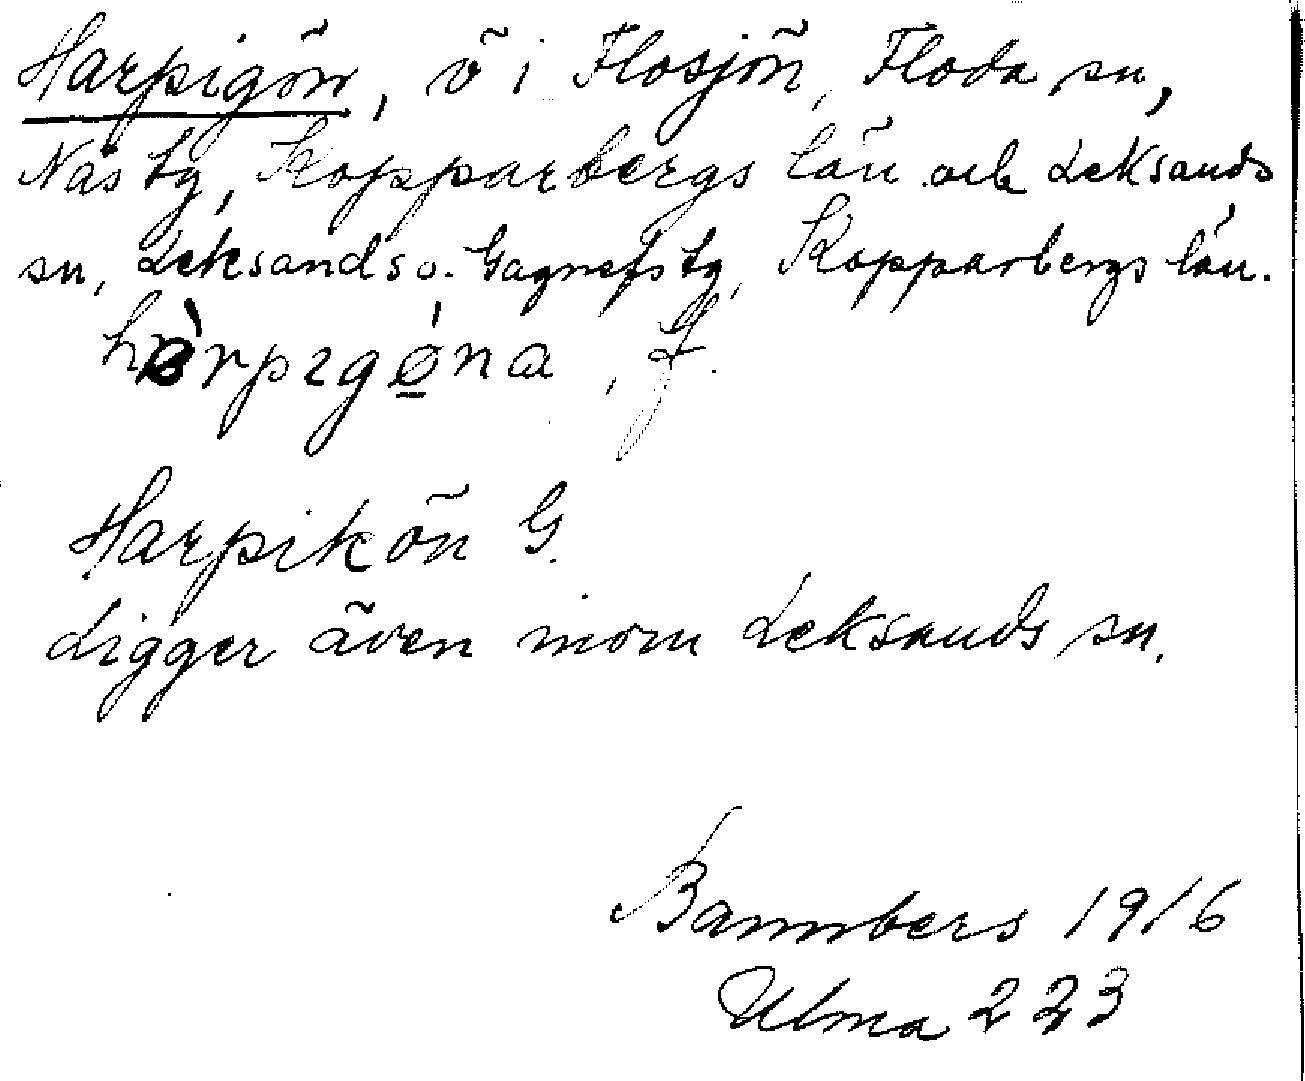 Harpigön, ö i Flosjön, Floda sn,
Näs tg, Kopparbergs län och Leksands
sn, Leksands o. Gagnefs tg, Kopparbergs län.
hàrpıgǿ̱na, f.
Harpikön G.
Ligger även inom Leksands sn.
Bannbers 1916
Ulma 223